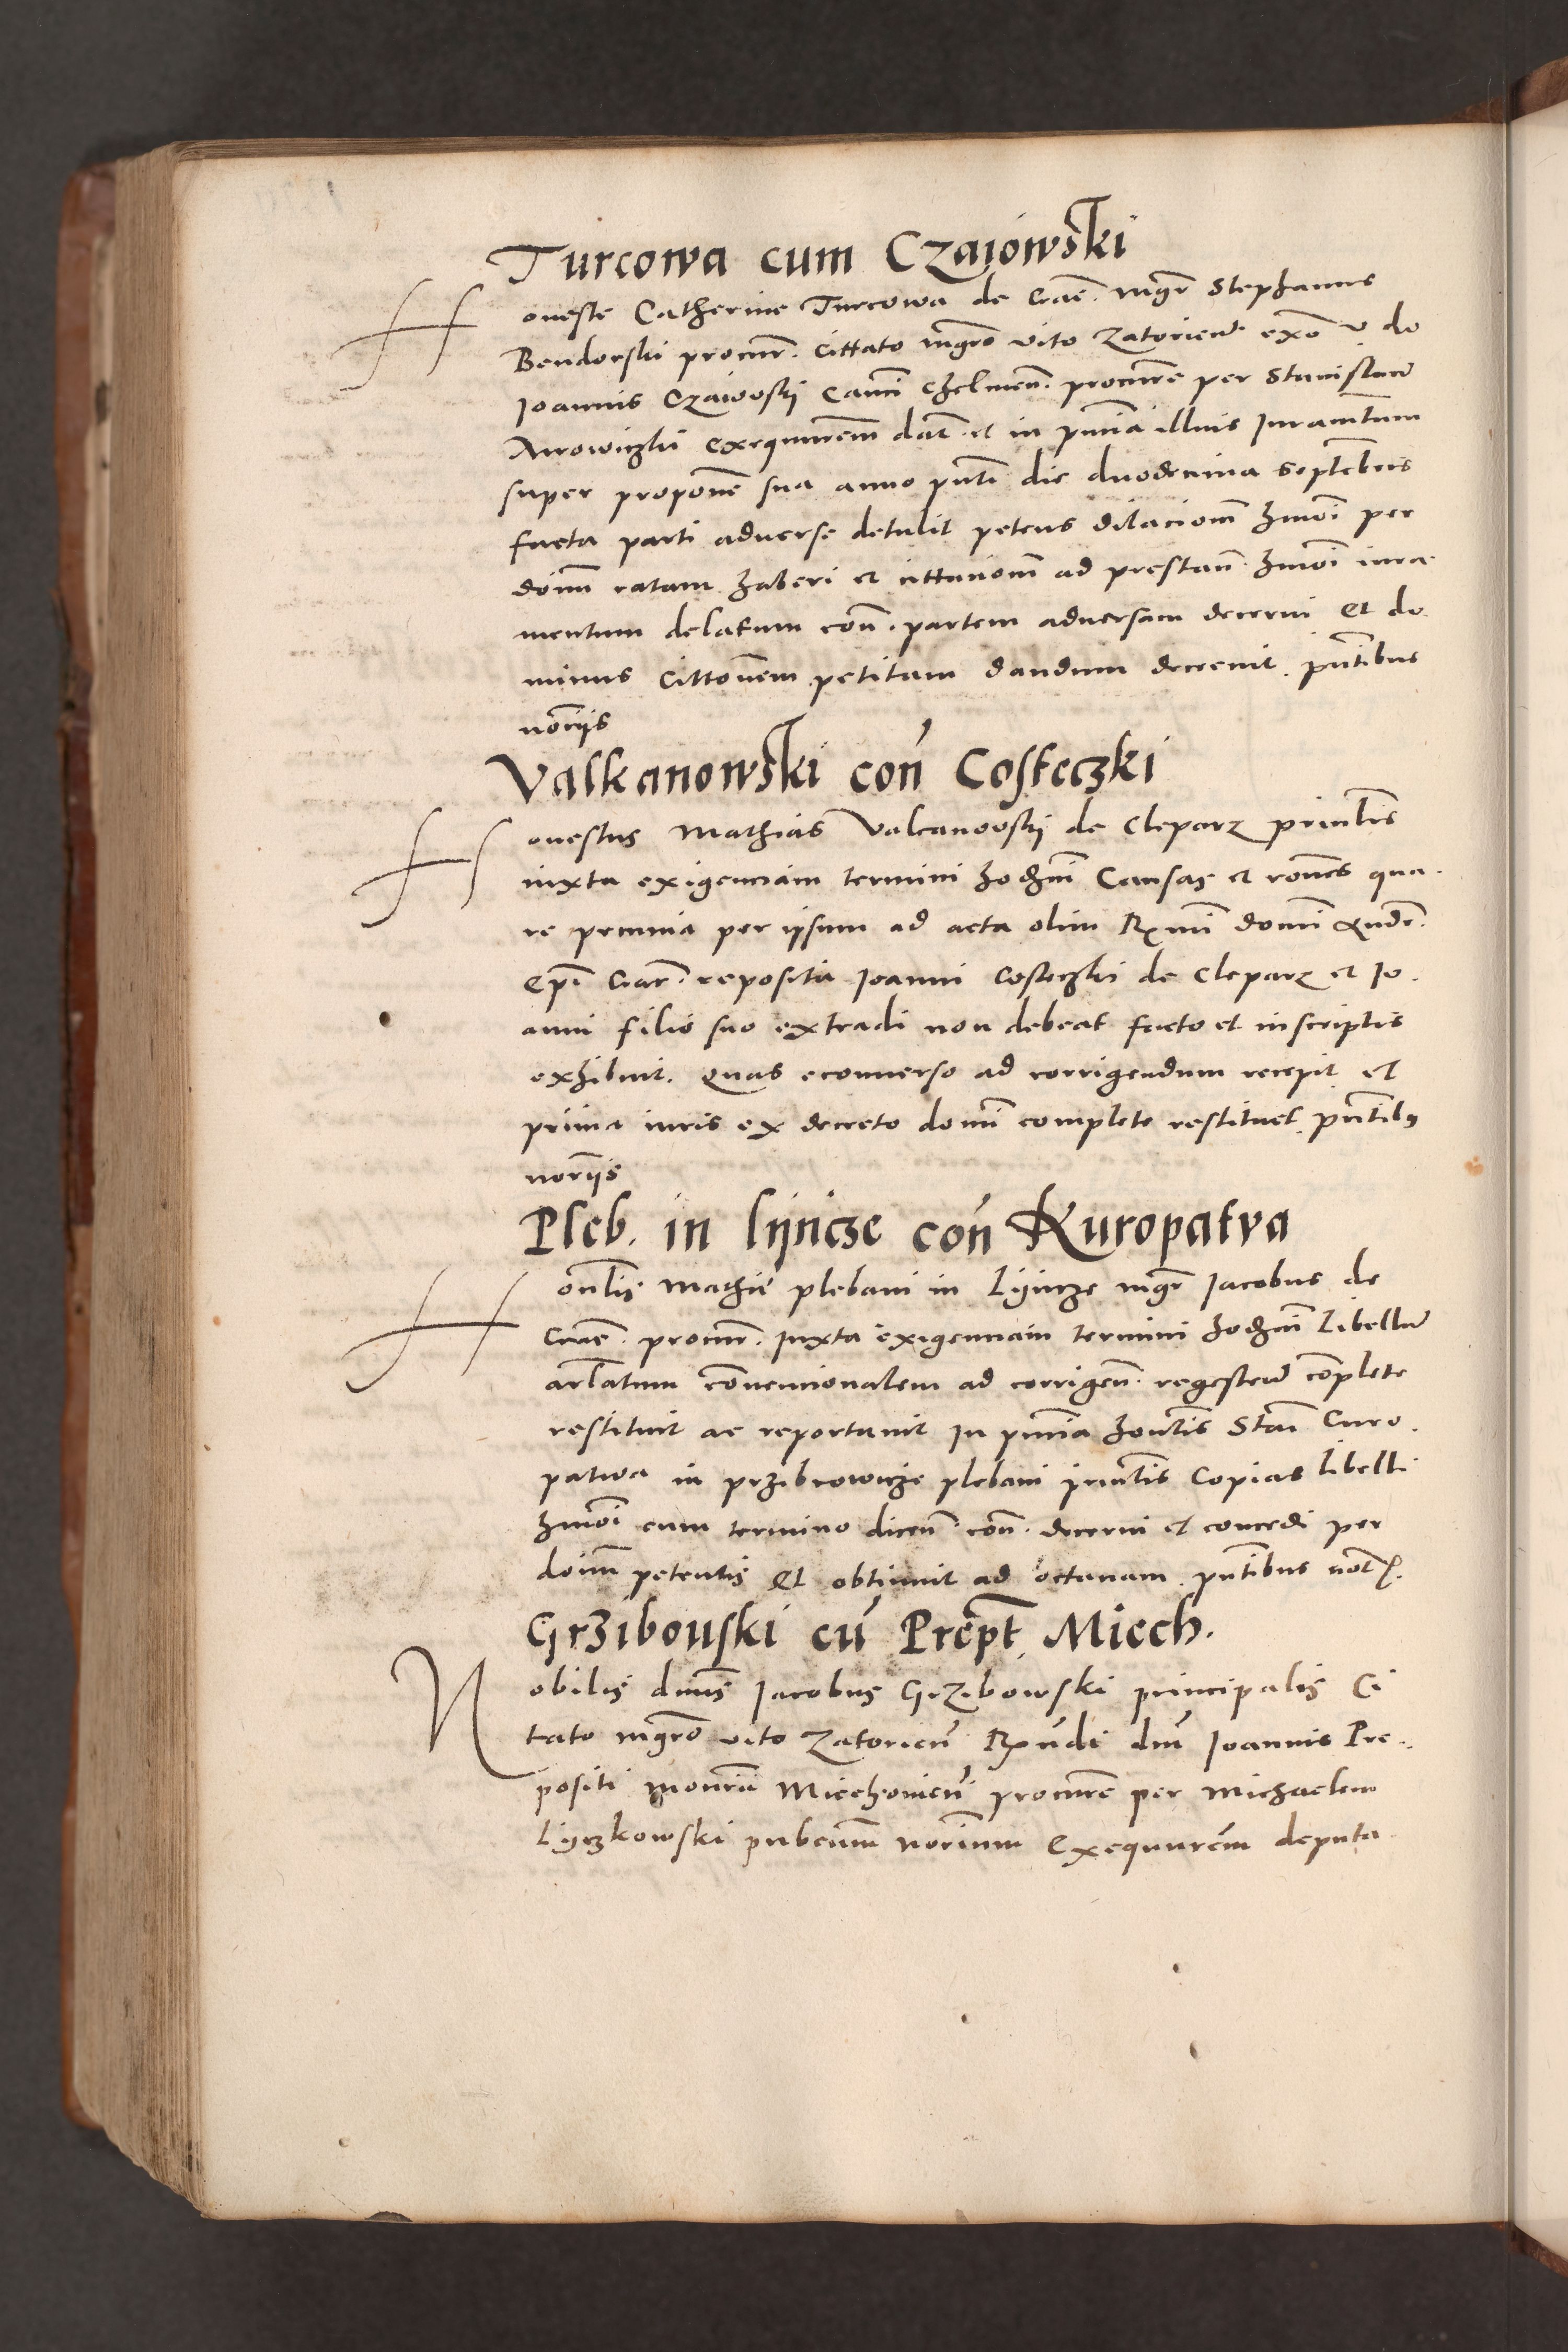 Turcowa cum Czaiowski
Honeste Catherine Turcowa de Crac. mgr Stephanus
Bendorski procur. cittato mgro Vito Zatorien. exo v. do
Ioannis Czaiowskij Canci Chelmen. procure per Stanislaum
exequurem dat. et in pntia illius Iuramtum
super propone sua anno pnti die duodecima Septebris
facta parti adverse detulit petens dilaciom hmoi per
doim ratam haberi et cittaciom ad prestan. hmoi iura
mentum delatum con. partem adversam decerni Et do
minus Cittonem petitam dandum decrevit. pntibus
noriis
Valkanowski con Costeczki
Honestus Mathias Valcanovskij de Cleparz principlis
iuxta exigenciam termini hodgni Causas et rones qua.
re pecunia per ipsum ad acta olim Rmi domi
Epi Crac. reposita Ioanni Costeczki de Cleparz et Io.
anni filio suo extradi non debeat facto et inscriptis
exhibuit. Quas econverso ad corrigendum recepit et
prima iuris ex decreto domi complete restituet pntibus
noriis
Pleb. in lijncze con Kuropatva
Honblis Mathie plebani in Lijncze mgr Iacobus de
Crac. procur. Iuxta exigenciam termini hodgni Libellum
arlatum convencionalem ad corrigen. regestrum complete
restituit ac reportavit In pntia honblis Stai Curo.
patwa in Przibrowicze plebani printis Copias libelli
hmoi cum termino dicen. con. decerni et concedi per
doim petentis Et obtinuit ad octavam. pntibus not.
Grzibouski cu Prept Miech.
Nobilis dnus Iacobus Grzibowski principalis Ci
tato mgro Vito Zatorien. Rndi dni Ioannis Pre.
positi monrii Miechovien. procure per Michaelem
Lyczkowski pubcum norium Exequurem deputa